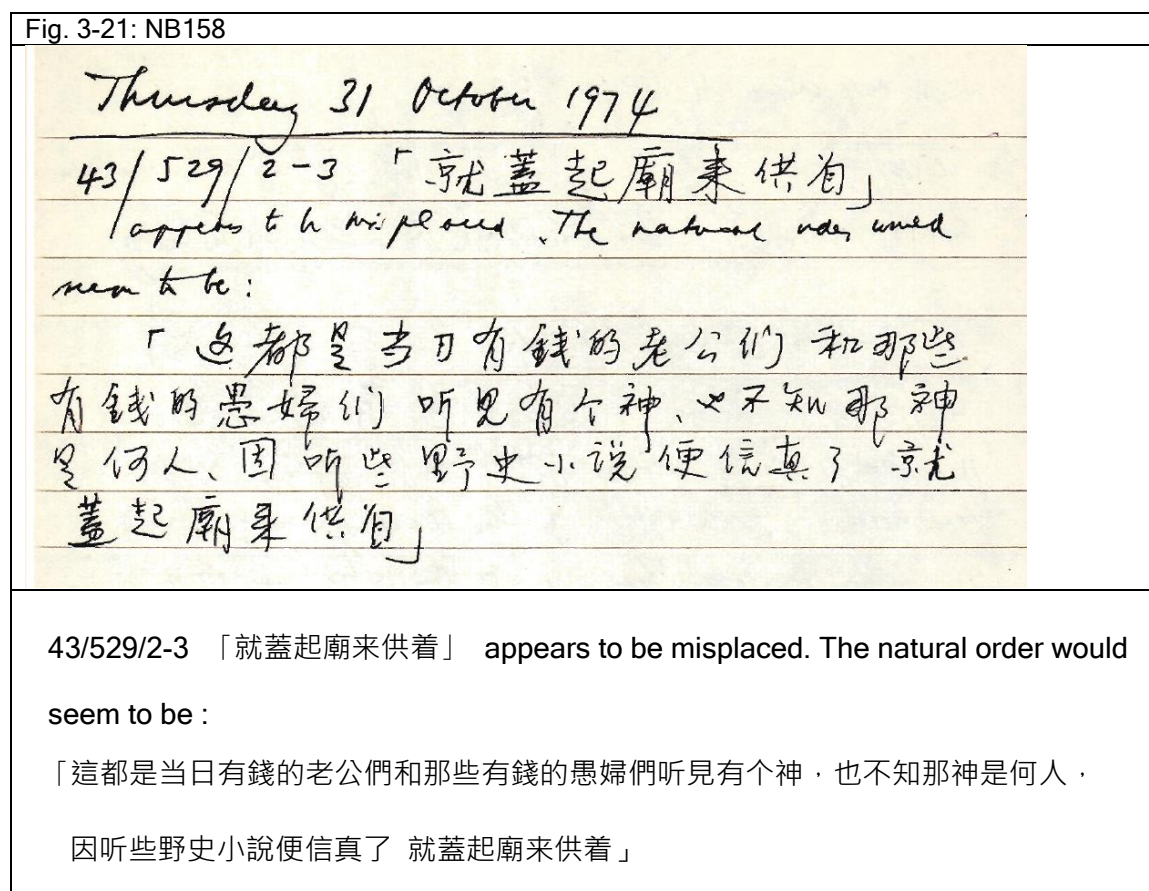 Fig. 3-21: NB158
Thursday 31 October 1974
43/529/2-3 「就蓋起廟来供着」
appears to be misplaced. The natural order would
seem to be:
「这都是当日有錢的老公们和那些
有錢的愚婦们听見有个神、也不知那神
是何人、因听些野史小说便信真了 就
蓋起廟来供着」
43/529/2-3 「就蓋起廟来供着」 appears to be misplaced. The natural order would
seem to be :
「這都是当日有錢的老公們和那些有錢的愚婦們听見有个神，也不知那神是何人，
因听些野史小說便信真了 就蓋起廟来供着」